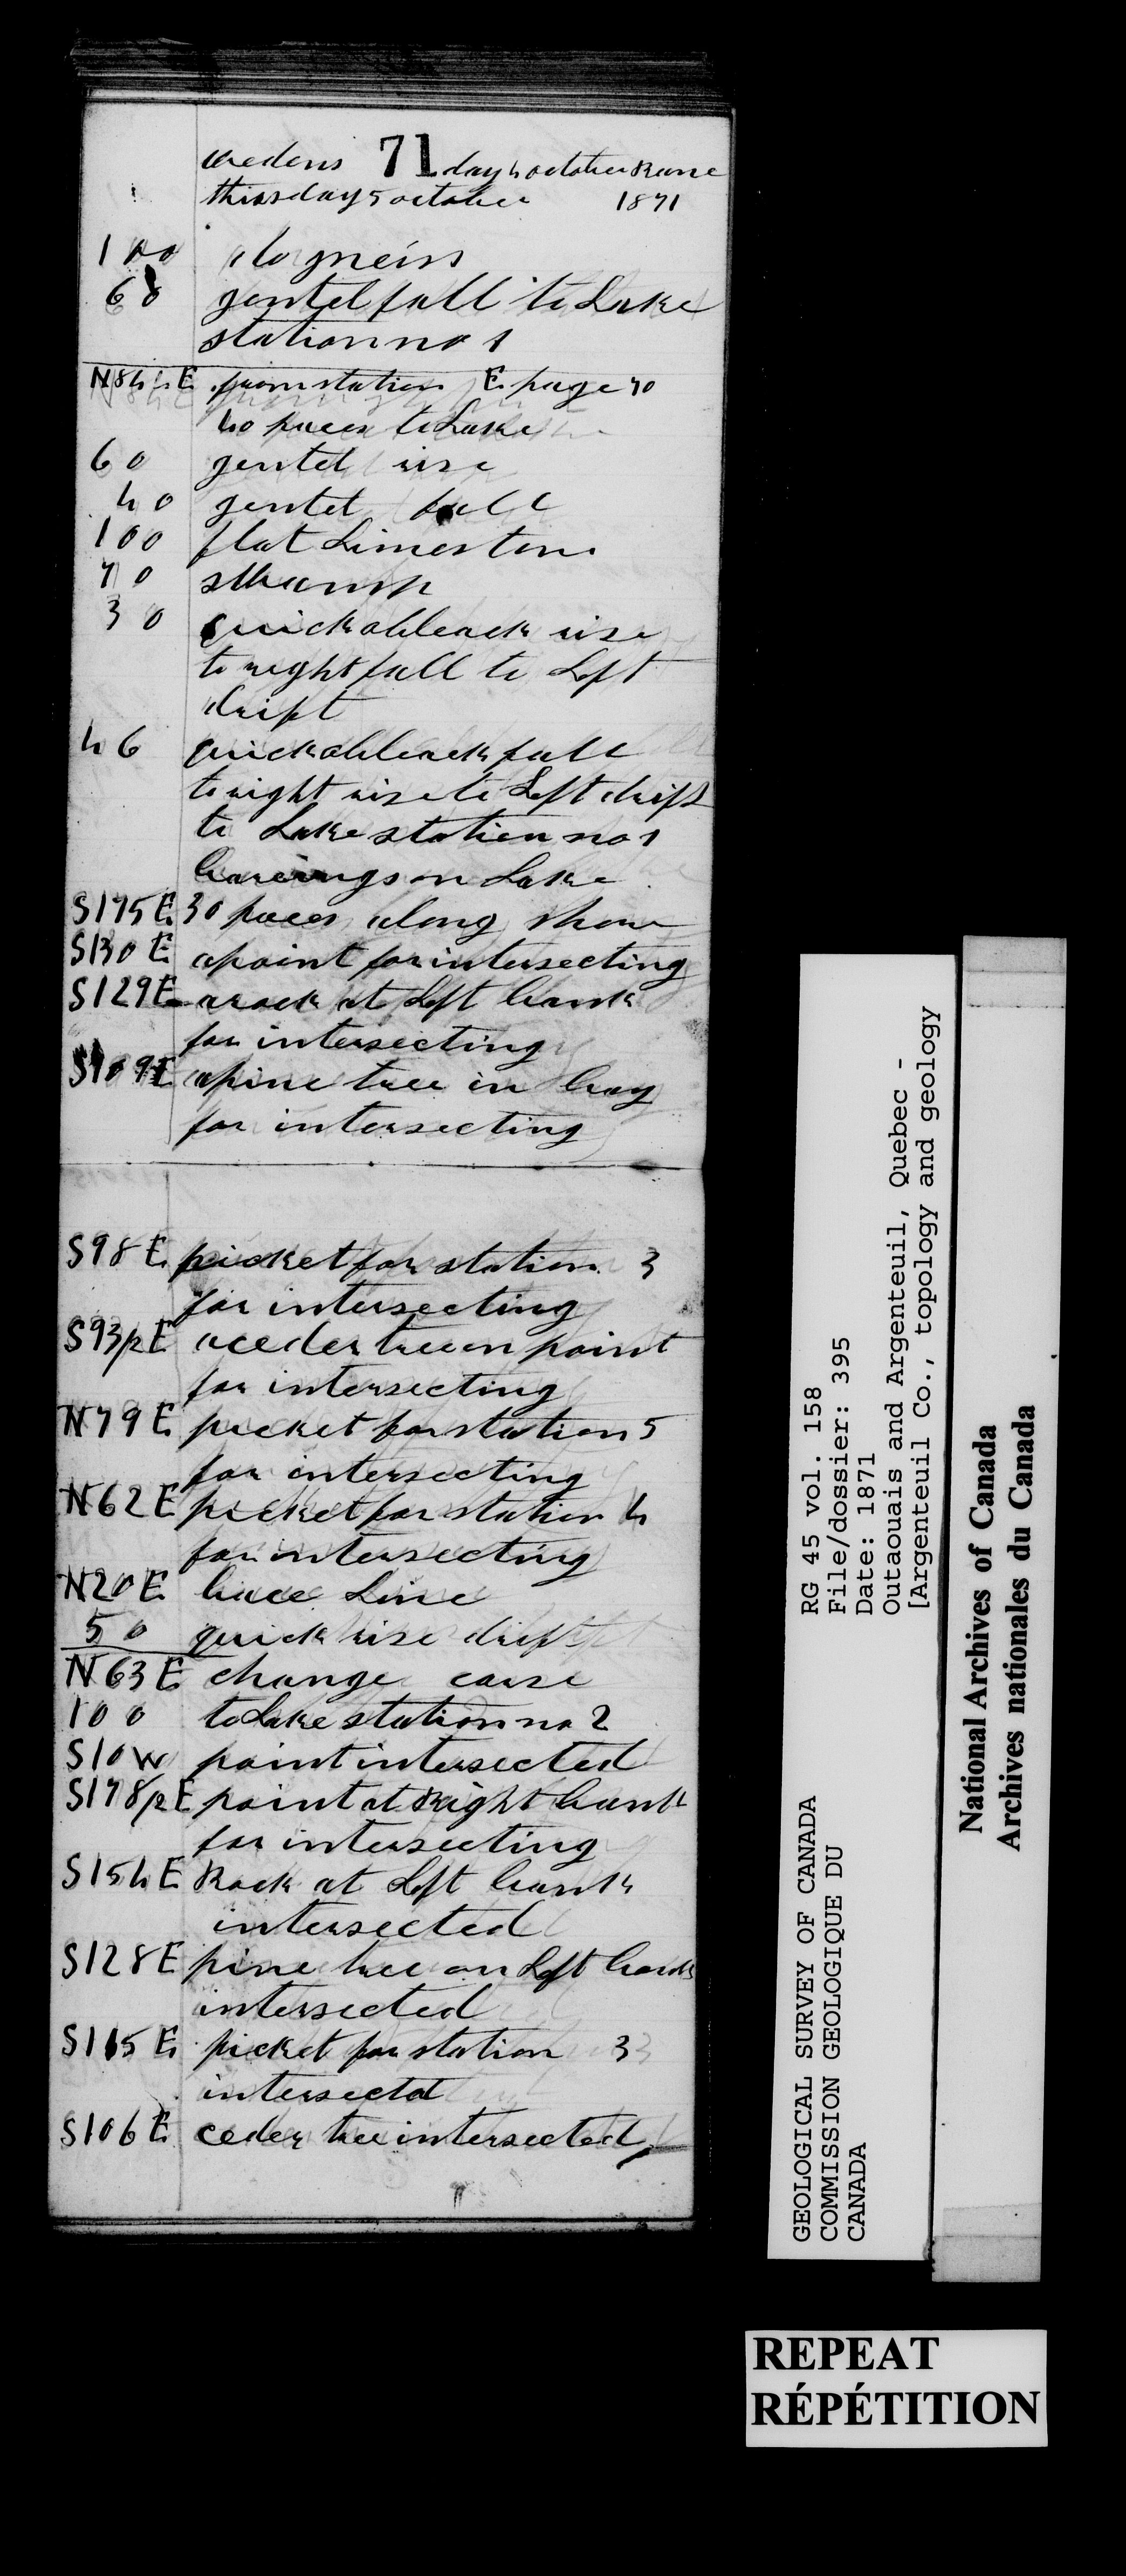 wedens 71 day 4 october Rane
thirsday 5 october 1871
100 do gneiss
68 gentel fall to Lake
station no 1
N84 E from station E page 70
40 paces to Lake
60 gentel rise
40 gentel fall
100 flat Limeston
70 swamp
30 quick obleack rise
to right fall to Left
drift
46 quick obleack fall
to right rise to Left drift
to Lake station no 1
bareings on Lake
S175E 30 paces along shore
S130E a point for intersecting
S129E a rock at Left bank
for intersecting
S109E a pine tree in bay
for intersecting
S98E picket for station 3
for intersecting
S93½E a ceder tree on point
for intersecting
N79E picket for station 5
for intersecting
N62E picket for station 4
for intersecting
N20E bace Line
50 quick rise drift
N63E change corse
100 to Lake station no 2
S10W point intersected
S178½E point at Right bank
for intersecting
S154E Rock at Left bank
intersected
S128E pine tree on Left bank
intersected
S115E picket for station 3
intersectd
S106E ceder tree intersected
RG 45 vol. 158
File/dossier: 395
Date: 1871
Outaouais and Argenteuil, Quebec -
[Argenteuil Co., topology and geology
GEOLOGICAL SURVEY OF CANADA
COMMISSION GEOLOGIQUE DU
CANADA
National Archives of Canada
Archives nationales du Canada
REPEAT
RÉPÉTITION